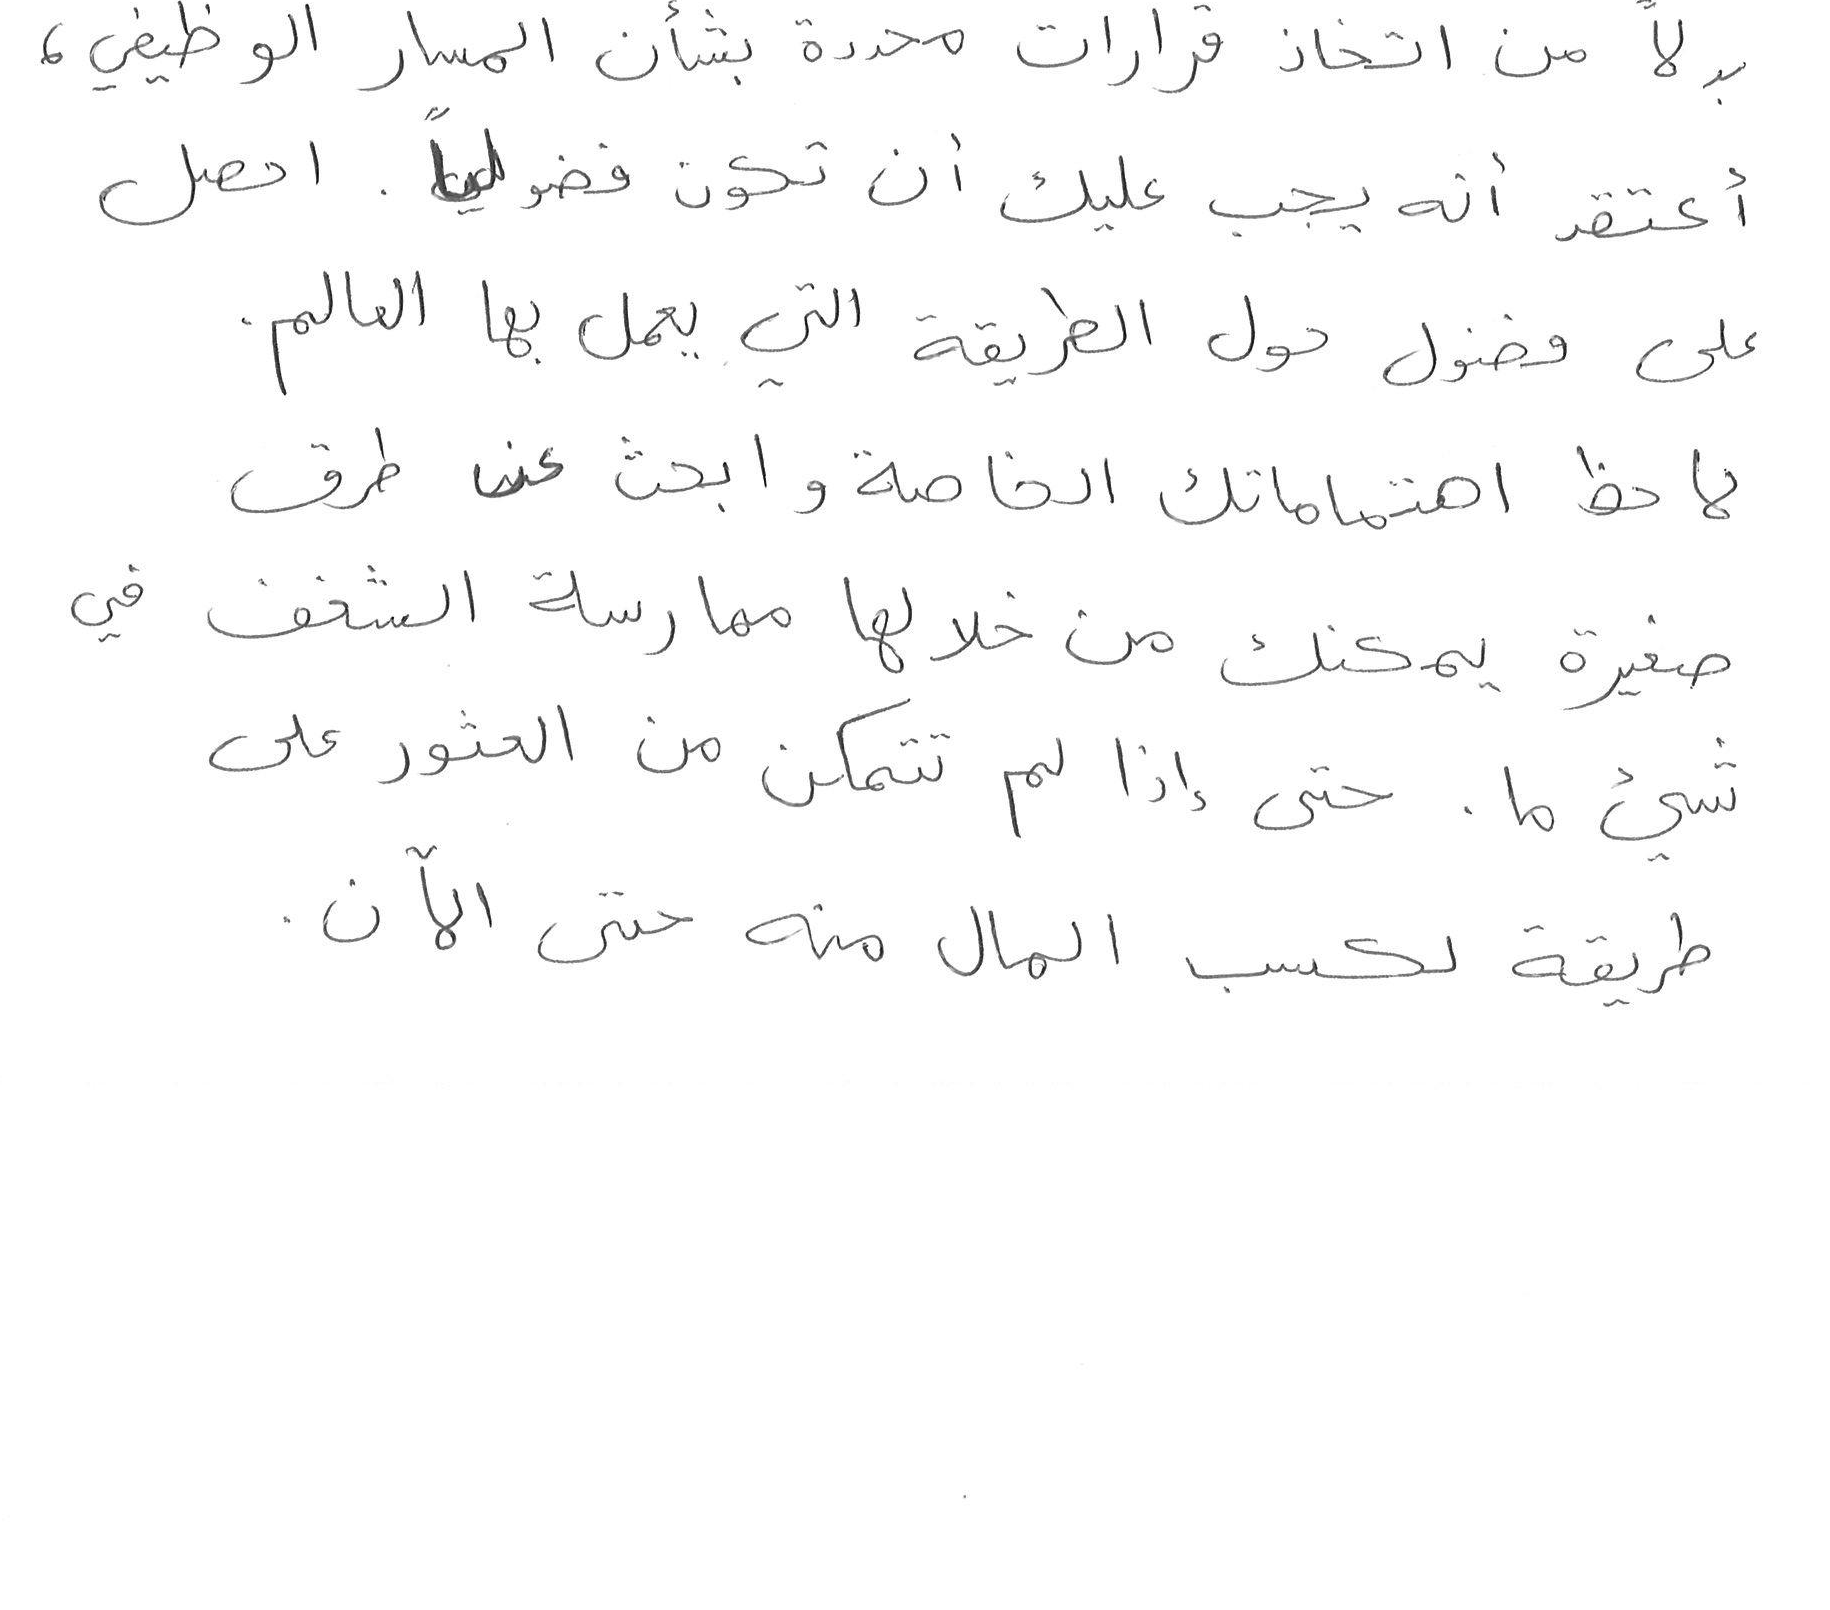 بدلاً من اتخاذ قرارات محددة بشأن المسار الوظيفي،
أعتقد أنه يجب عليك أن تكون فضولياً. احصل
على فضول حول الطريقة التي يعمل بها العالم.
لاحظ اهتماماتك الخاصة وابحث عن طرق
صغيرة يمكنك من خلالها ممارسة الشغف في
شيئ ما. حتى إذا لم تتمكن من العثور على
طريقة لكسب المال منه حتى الآن.